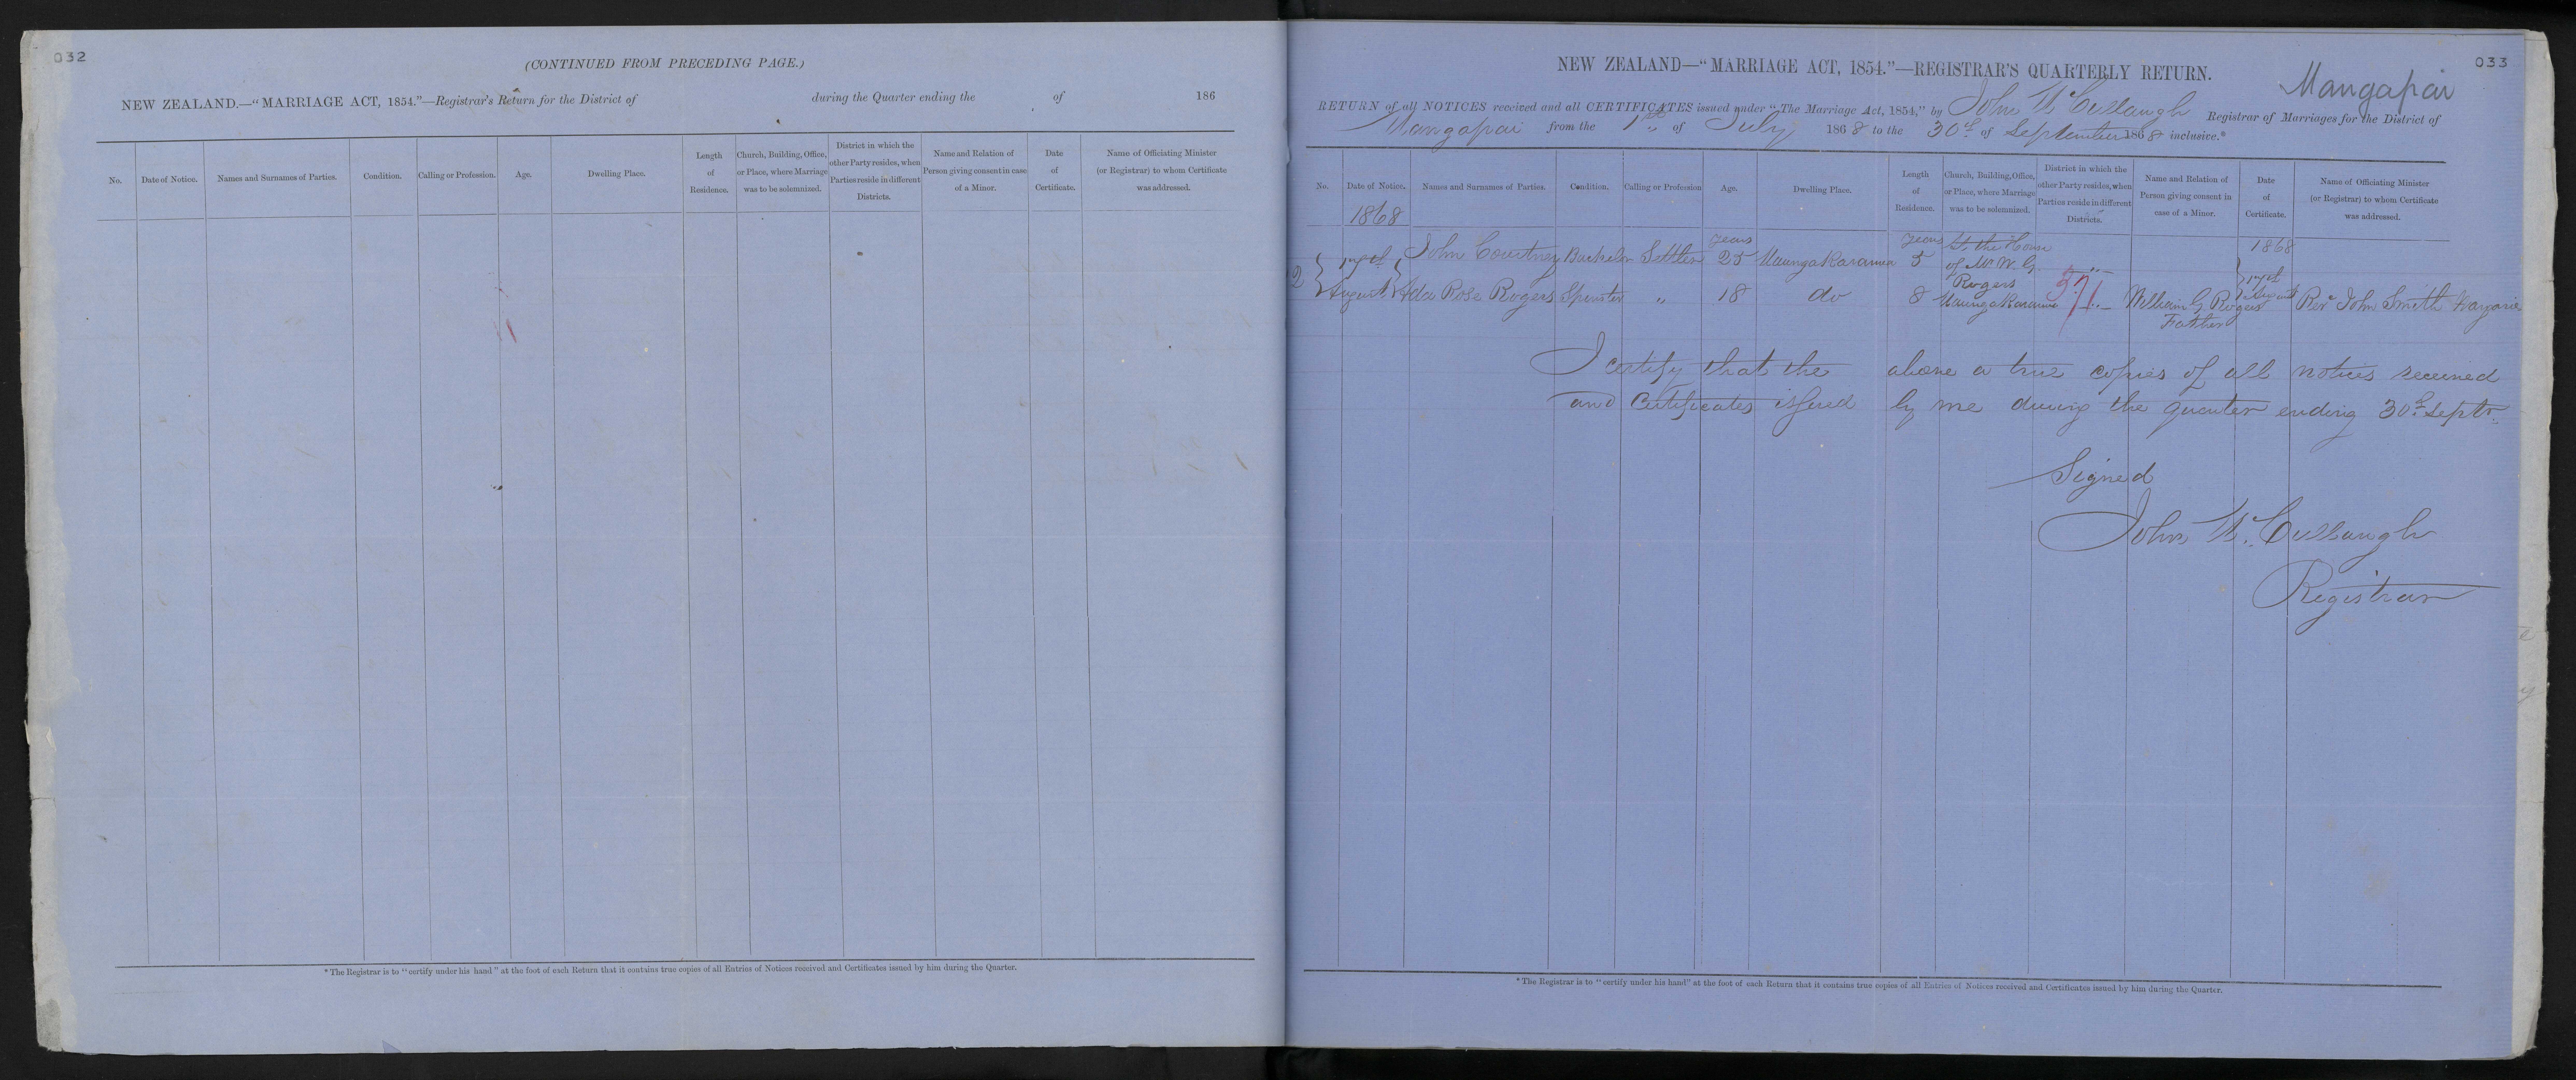 032
(CONTINUED FROM PRECEDING PAGE.)
NEW ZEALAND.—"MARRIAGE ACT, 1854."—Registrar's Return for the District of during the Quarter ending the of 186
No. Date of Notice. Names and Surnames of Parties. Condition. Calling or Profession. Age. Dwelling Place. Length of Residence. Church, Building, Office, or Place, where Marriage was to be solemnized. District in which the other Party resides, when Parties reside in different Districts. Name and Relation of Person giving consent in case of a Minor. Date of Certificate. Name of Officiating Minister (or Registrar) to whom Certificate was addressed.
* The Registrar is to "certify under his hand" at the foot of each Return that it contains true copies of all Entries of Notices received and Certificates issued by him during the Quarter.
033
NEW ZEALAND—"MARRIAGE ACT, 1854."—REGISTRAR'S QUARTERLY RETURN.
Mangapai
RETURN of all NOTICES received and all CERTIFICATES issued under "The Marriage Act, 1854," by John McCullaugh Registrar of Marriages for the District of
Mangapai from the 1st of July 1868 to the 30th of September 1868 inclusive.*
No. Date of Notice. Names and Surnames of Parties. Condition. Calling or Profession Age. Dwelling Place. Length of Residence. Church, Building, Office, or Place, where Marriage was to be solemnized. District in which the other Party resides, when Parties reside in different Districts. Name and Relation of Person giving consent in case of a Minor. Date of Certificate. Name of Officiating Minister (or Registrar) to whom Certificate was addressed.
1868
years years At the House 1868
2 John Courtney Bachelor Settler 25 Maungakaramea 5 of Mr W. G.
Rogers 371
August Ada Rose Rogers Spinster " 18 do 8 Maungakaramea William G Rogers August Revd John Smith
Father
I certify that the above a true copies of all notices received
and Certificates issued by me during the quarter ending 30th Septr
Signed
John McCullaugh
Registrar
* The Registrar is to "certify under his hand" at the foot of each Return that it contains true copies of all Entries of Notices received and Certificates issued by him during the Quarter.